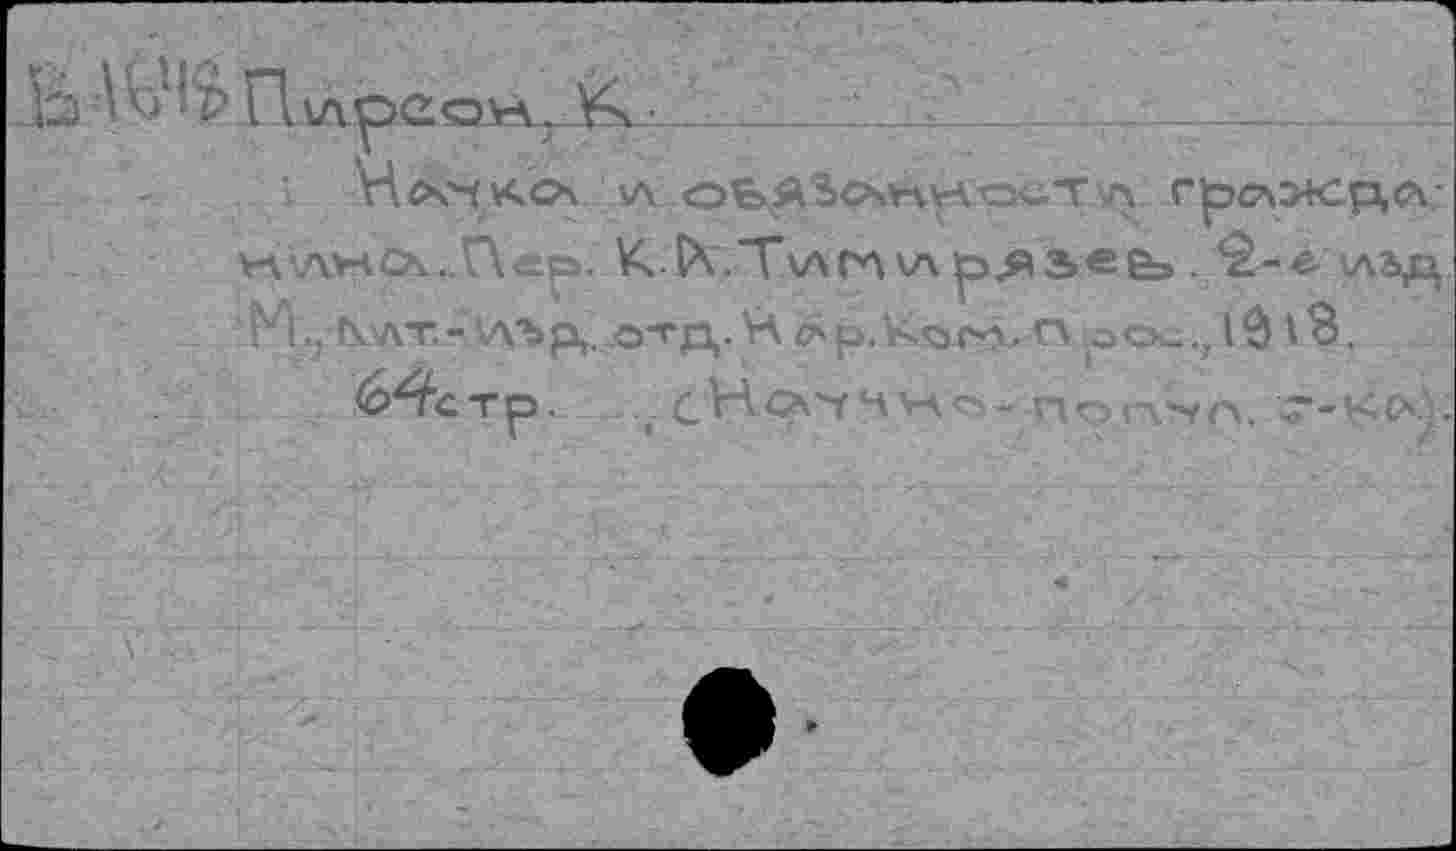 Пирсон, К.
Наука и обязанности гражда-
нина. Пер. К.А. Тимирязев. 2-е изд
М., Лит.-изд. отд. Нар. Ком. Прос., 1918.
64 стр. (Научно-попул. б-ка).